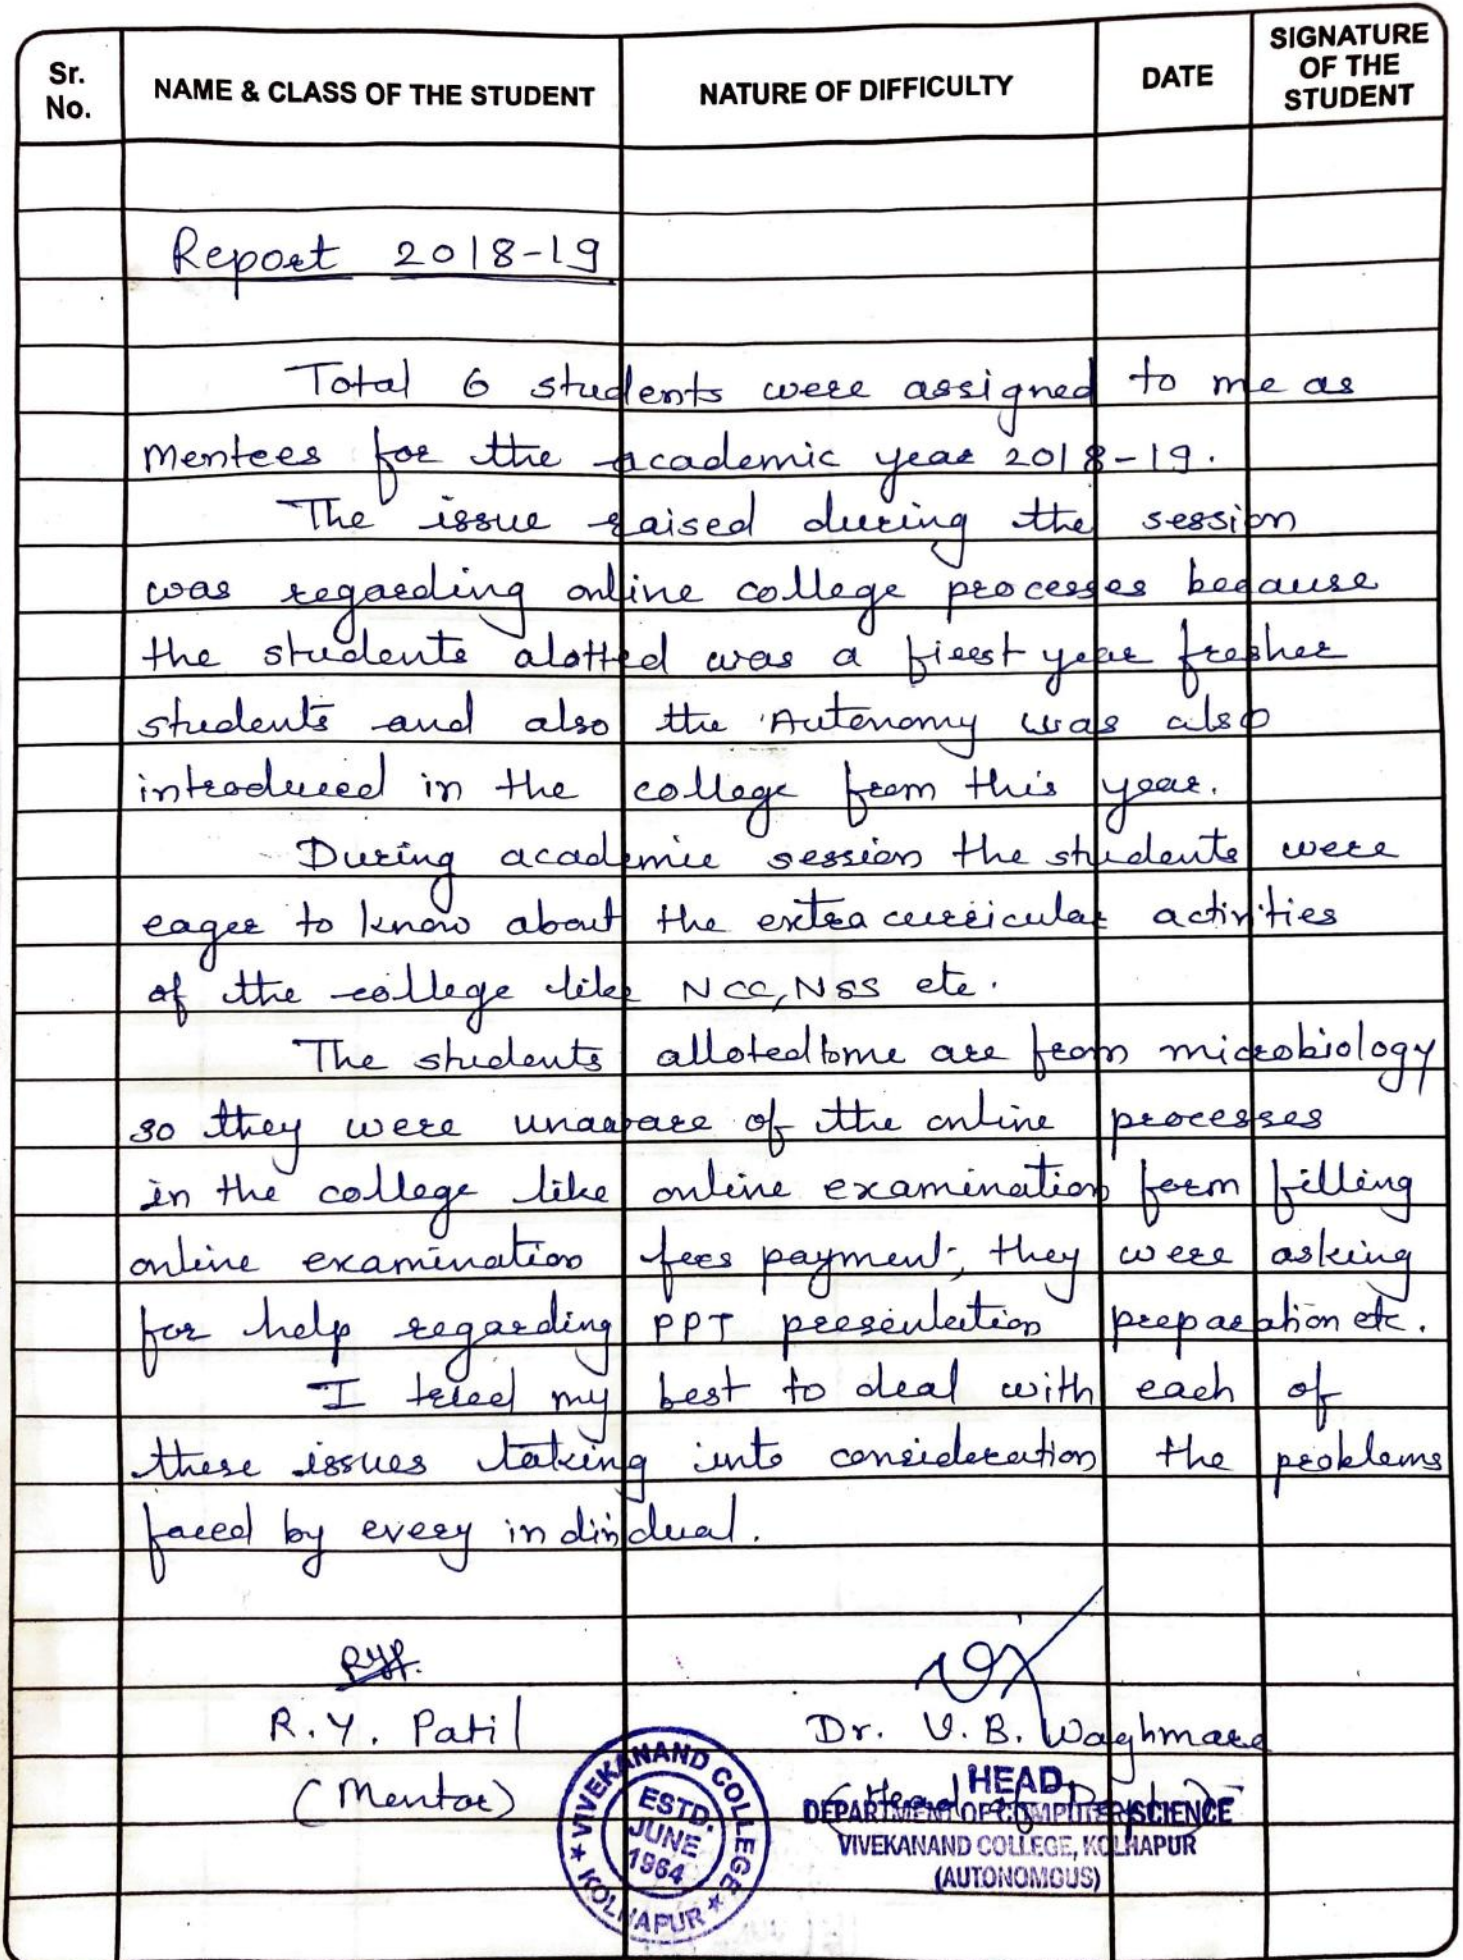 Sr. No.
NAME & CLASS OF THE STUDENT
NATURE OF DIFFICULTY
DATE
SIGNATURE OF THE STUDENT
Report 2018-19
Total 6 students were assigned to me as
mentees for the academic year 2018-19.
The issue raised during the session
was regarding online college processes because
the students alotted was a first year fresher
students and also the Autonomy was also
introduced in the college from this year.
During academic session the students were
eager to know about the extra curricular activities
of the college like NCC, NSS etc.
The students alloted to me are from microbiology
so they were unaware of the online processes
in the college like online examination form filling
online examination fees payment, they were asking
for help regarding PPT presentation preparation etc.
I tried my best to deal with each of
these issues taking into consideration the problems
faced by every individual.
R.Y. Patil
Dr. V. B. Waghmare
(Mentor)
(Head of Dept.)
HEAD
DEPARTMENT OF COMPUTER SCIENCE
VIVEKANAND COLLEGE, KOLHAPUR
(AUTONOMOUS)
VIVEKANAND COLLEGE
KOLHAPUR
ESTD.
JUNE
1964